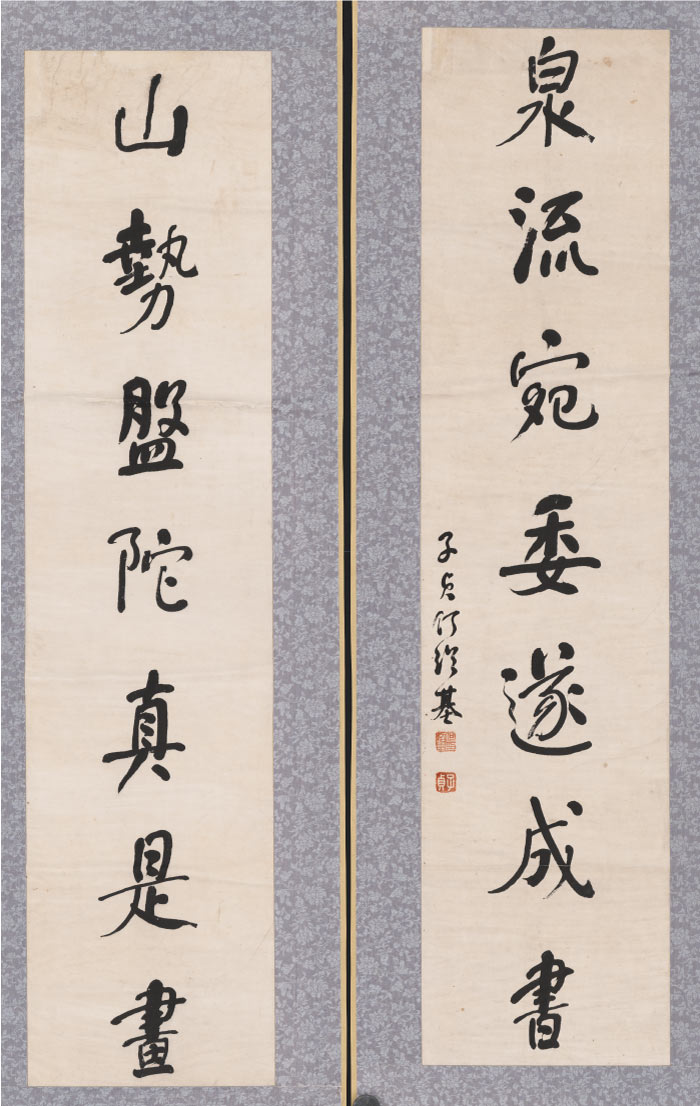 泉流宛委遂成書
子貞何紹基
子貞
山勢盤陀真是畫